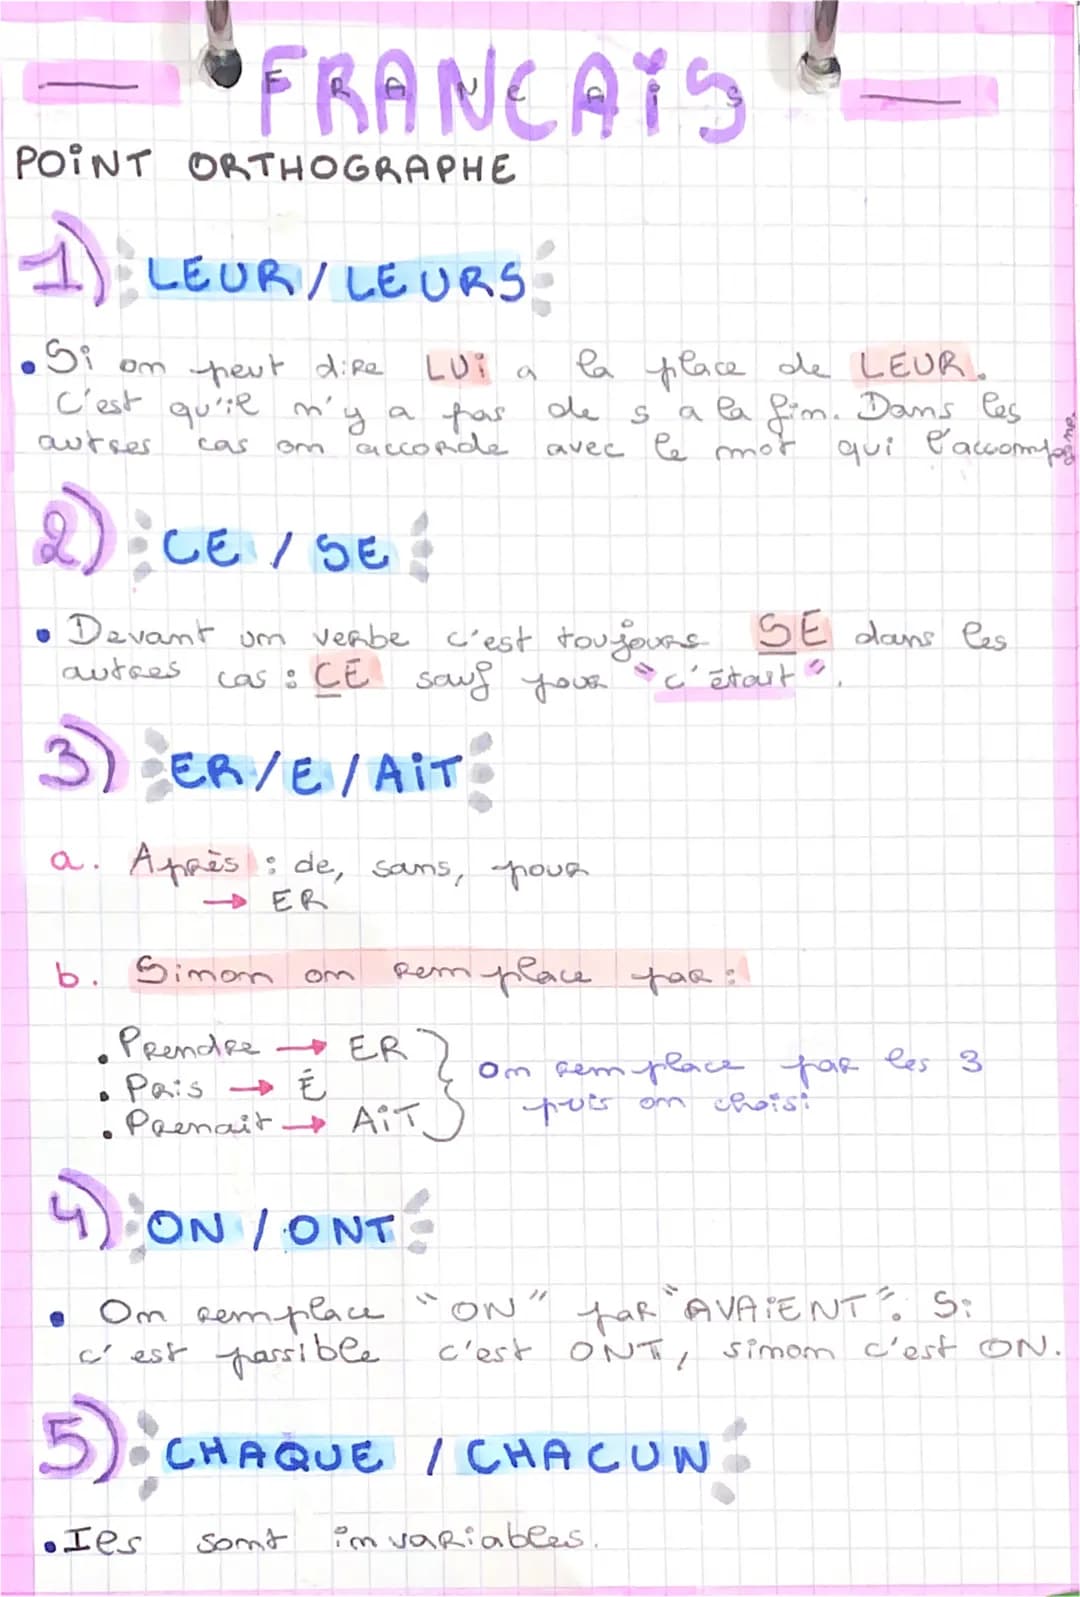 FRANCAIS
POINT ORTHOGRAPHE
1) LEUR / LEURS
• Si on peut dire LUI a la place de LEUR.
C'est qu'il n'y a pas de s a la fin. Dans les
autres cas on accorde avec le mot qui l'accompagne.
2) CE / SE
• Devant un verbe c'est toujours SE dans les
autres cas : CE sauf pour "c'était".
3) ER / E / AIT
a. Après : de, sans, pour
→ ER
b. Sinon on remplace par :
• Prendre → ER
• Pris → É
• Prenait → AIT
On remplace par les 3
puis on choisi
4) ON / ONT
• On remplace "ON" par "AVAIENT". Si
c'est possible c'est ONT, sinon c'est ON.
5) CHAQUE / CHACUN
• Ils sont invariables.